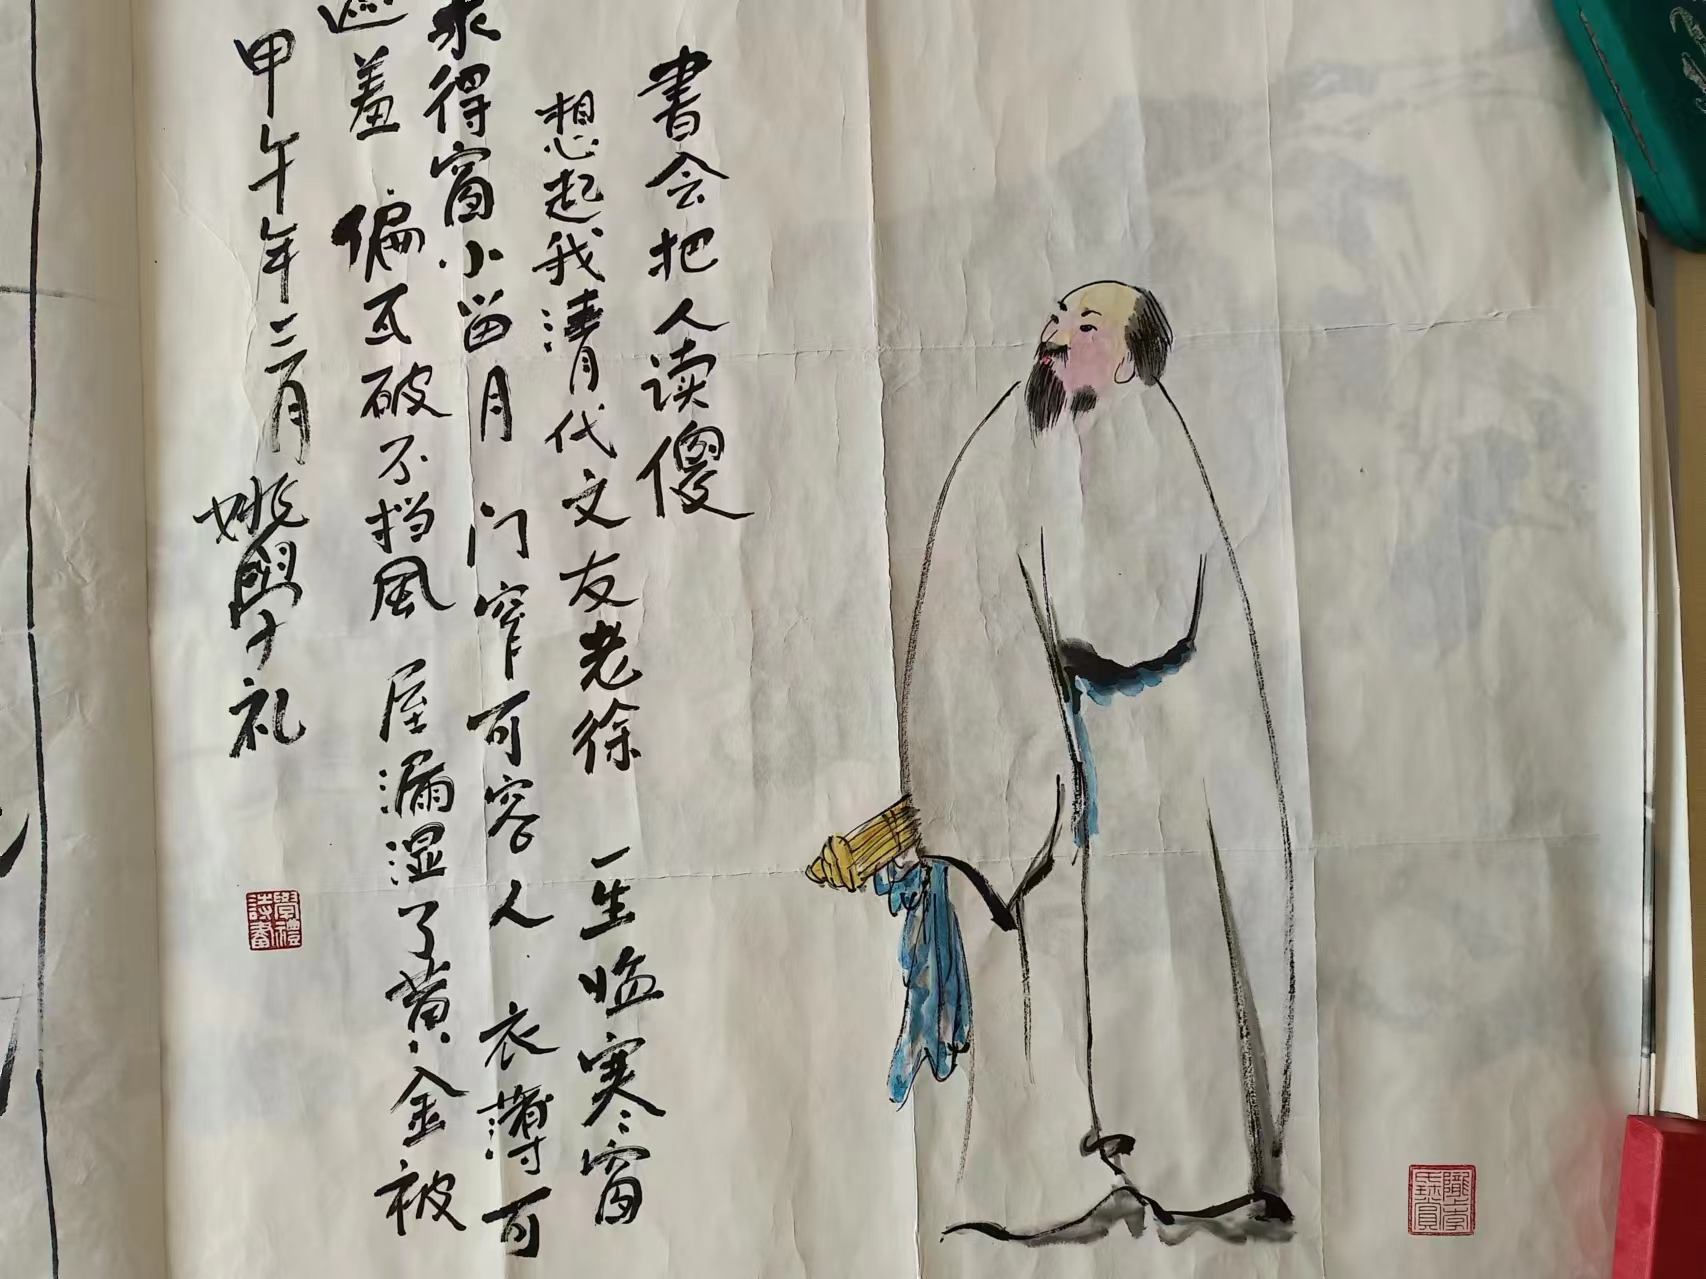 書会把人读傻
想起我清代文友老徐 一生临寒窗
求得窗小留月 门窄可容人 衣薄可
遮羞 偏瓦破不挡风 屋漏湿了黄金被
甲午年三月 姚學礼
學禮詩畫